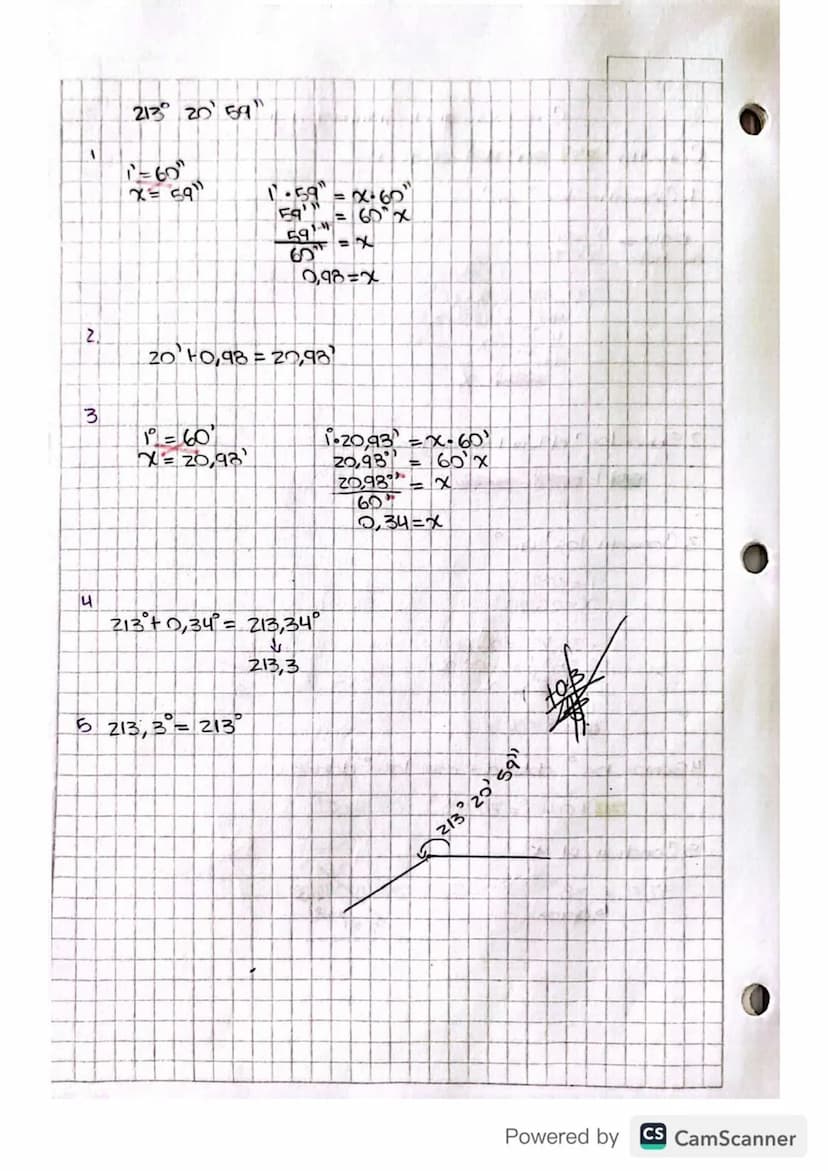 213° 20' 59"
1
1' = 60"
x = 59"
1' · 59" = x · 60"
59'" = 60" x
59'·" / 60" = x
0,98 = x
2.
20' + 0,98 = 20,98'
3
1° = 60'
x = 20,98'
1° · 20,98' = x · 60'
20,98°' = 60' x
20,98°' / 60' = x
0,34 = x
4
213° + 0,34° = 213,34°
↓
213,3
5 213,3° = 213°
213° 20' 59"
Powered by CS CamScanner